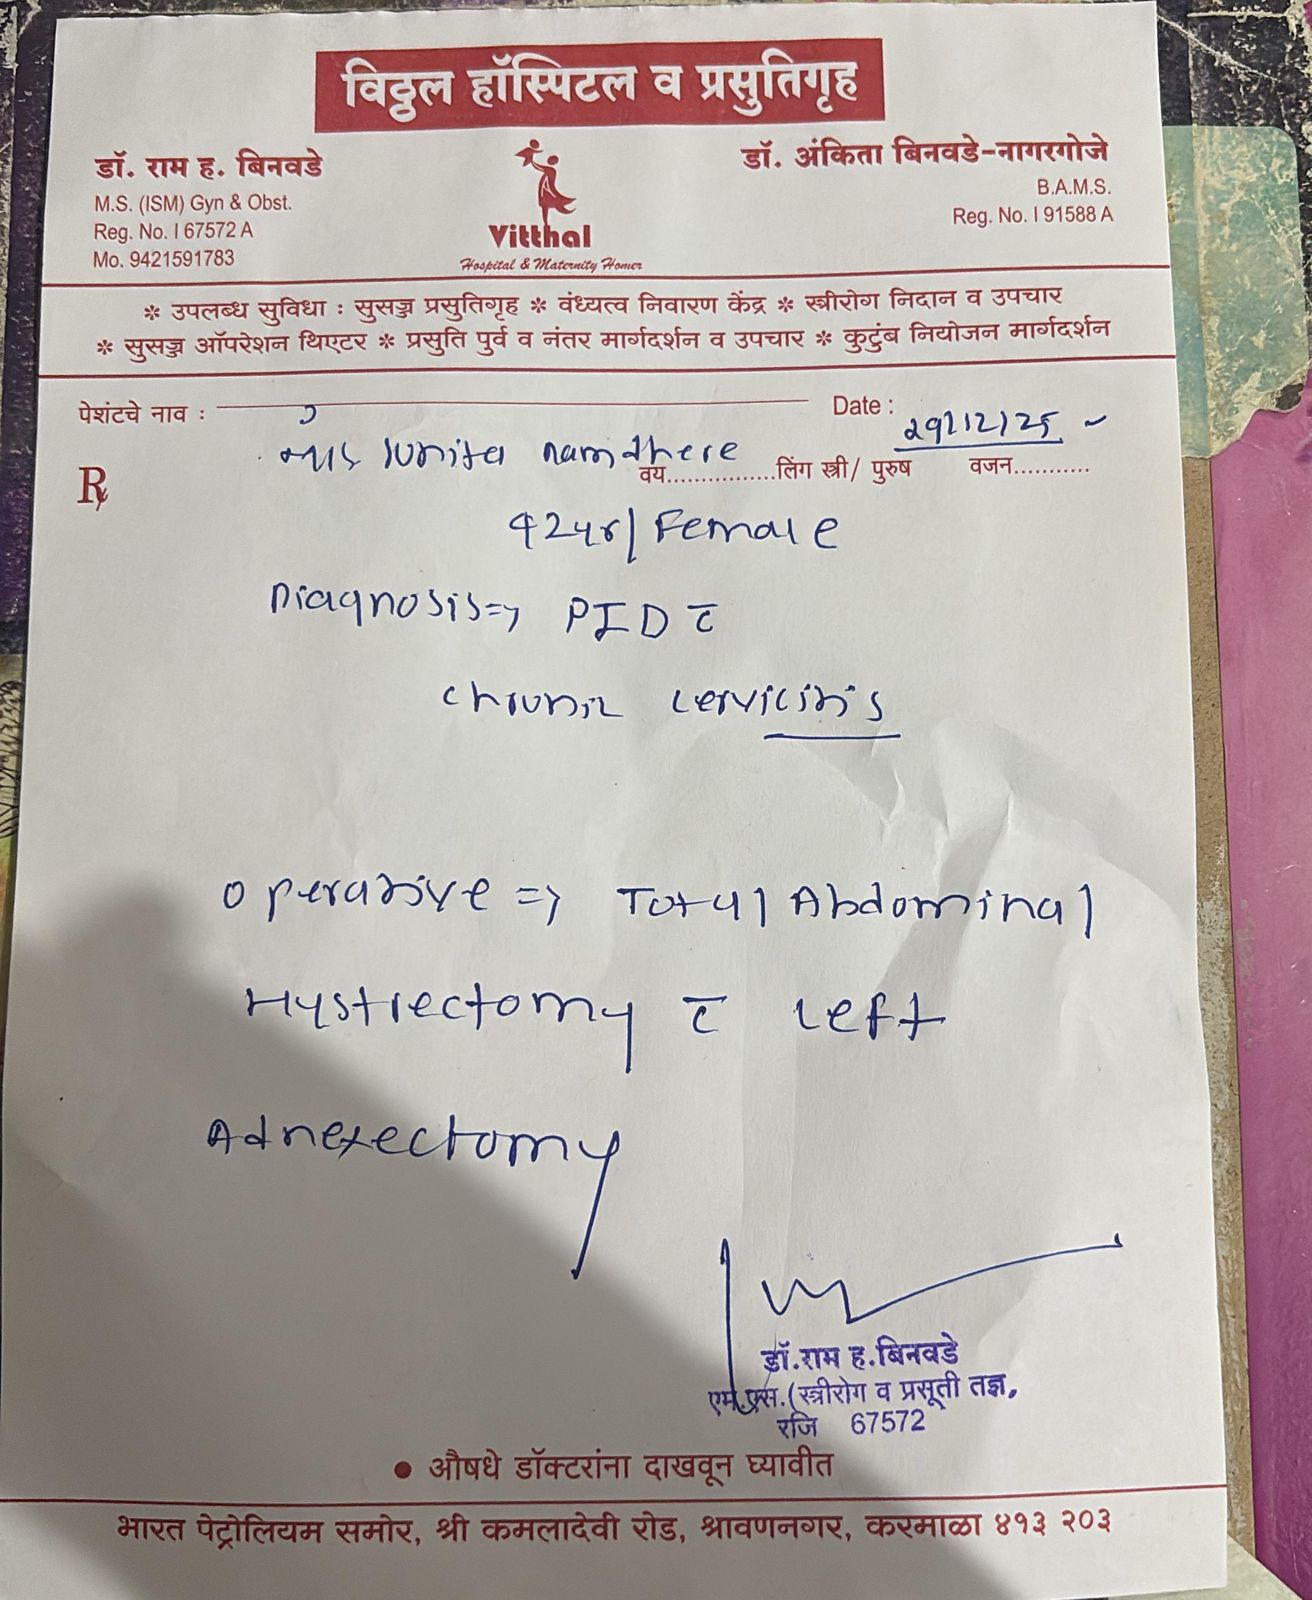 विठ्ठल हॉस्पिटल व प्रसुतिगृह
डॉ. राम ह. बिनवडे
M.S. (ISM) Gyn & Obst.
Reg. No. I 67572 A
Mo. 9421591783
Vitthal
Hospital & Maternity Homer
डॉ. अंकिता बिनवडे-नागरगोजे
B.A.M.S.
Reg. No. I 91588 A
* उपलब्ध सुविधा : सुसज्ज प्रसुतिगृह * वंध्यत्व निवारण केंद्र * स्त्रीरोग निदान व उपचार
* सुसज्ज ऑपरेशन थिएटर * प्रसुति पुर्व व नंतर मार्गदर्शन व उपचार * कुटुंब नियोजन मार्गदर्शन
पेशंटचे नाव : Date : 29/12/25
Sunita namdhere
वय................लिंग स्त्री/ पुरुष वजन...........
R
42yr/ Female
Diagnosis=> PID c̄
chronic cervicitis
operative => Total Abdominal
Hystrectomy c̄ Left
Adnexectomy
डॉ.राम ह.बिनवडे
एम.एस.(स्त्रीरोग व प्रसूती तज्ञ,
रजि 67572
• औषधे डॉक्टरांना दाखवून घ्यावीत
भारत पेट्रोलियम समोर, श्री कमलादेवी रोड, श्रावणनगर, करमाळा ४१३ २०३